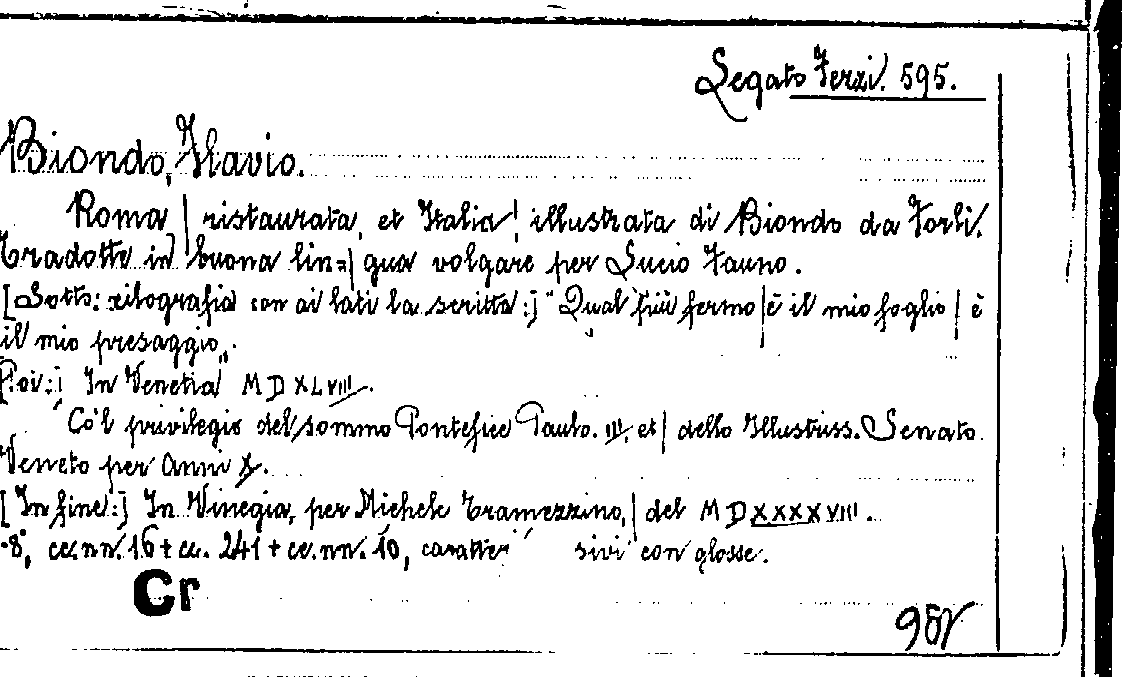 Legato Terzi. 595.
Biondo, Flavio.
Roma | ristaurata, et Italia | illustrata di Biondo da Forlì.
Tradotte in | buona lin=| gua volgare per Lucio Fauno.
[Sotto: xilografia con ai lati la scritta:] "Qual più fermo | è il mio foglio | è
il mio presaggio".
[Poi:] In Venetia MDXLVIII.
Co'l privilegio del sommo Pontefice Paulo. III, et | dello Illustriss. Senato
Veneto per Anni X.
[In fine:] In Vinegia, per Michele Tramezzino, | del MDXXXXVIII.
-8°, cc.nn. 16 + cc. 241 + cc.nn. 10, caratteri sivi con glosse.
Cr